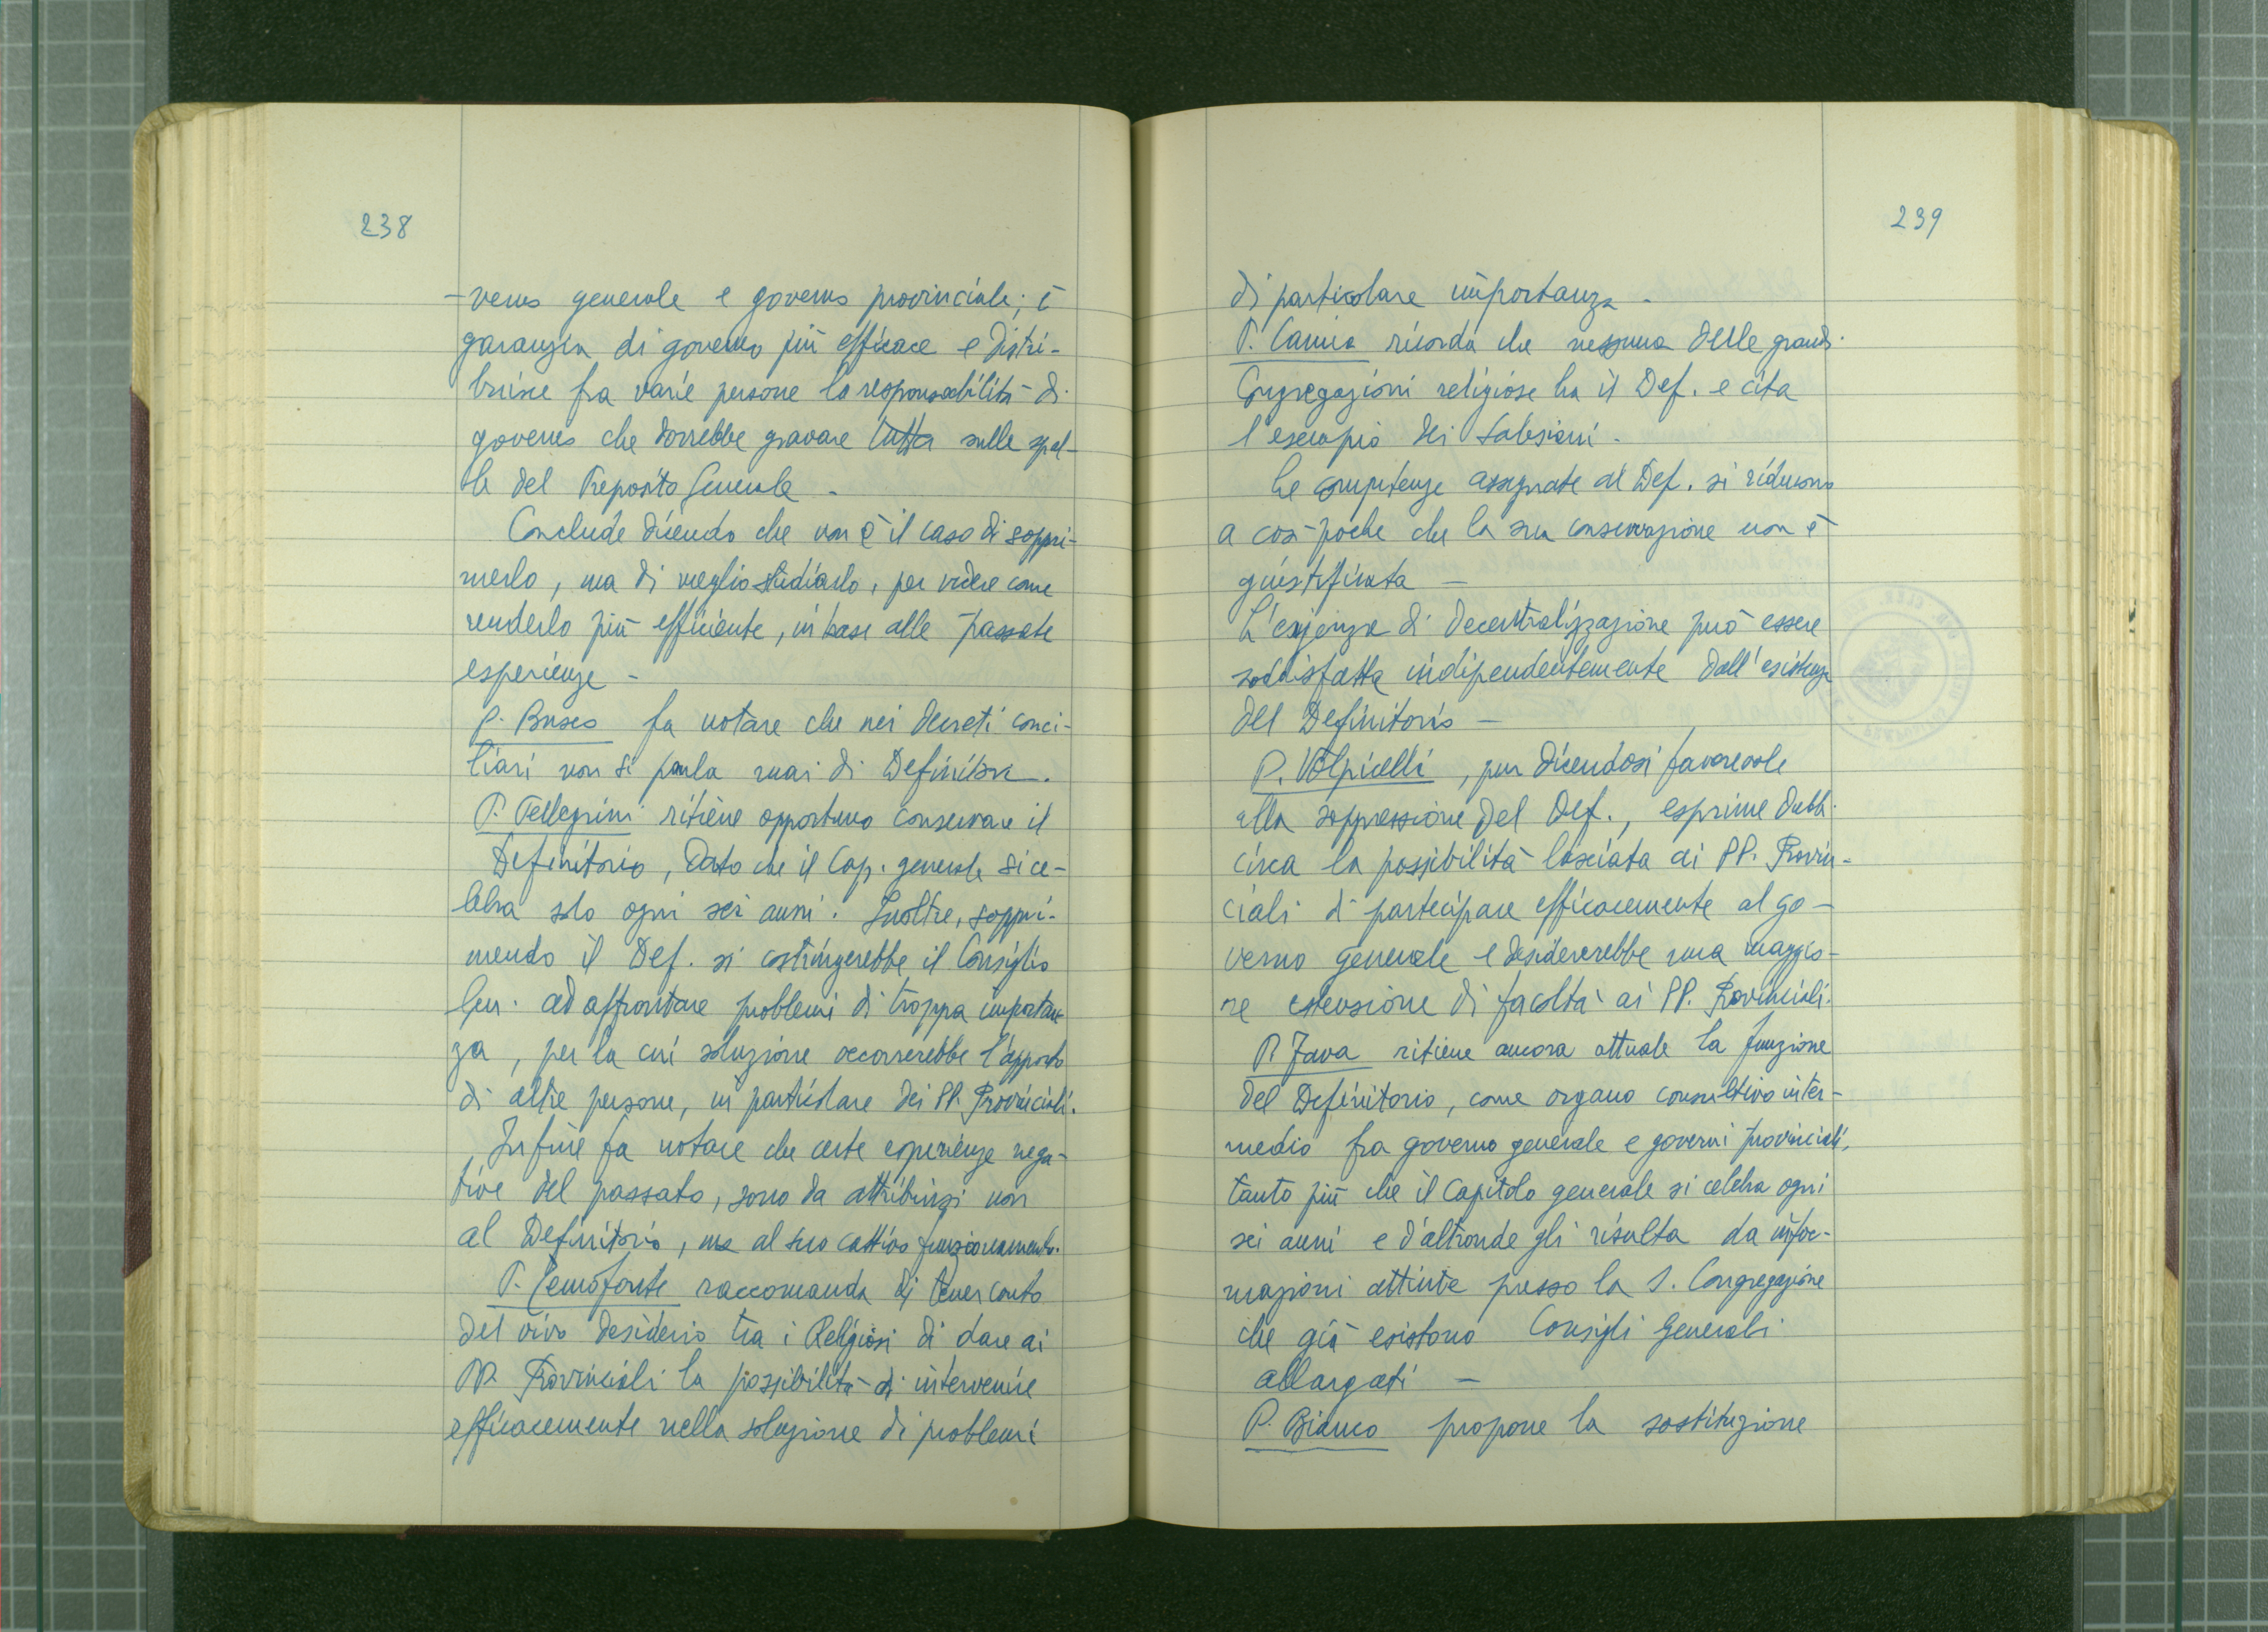 238
-verno generale e governo provinciale; è
garanzia di governo più efficace e distri-
buisce fra varie persone la responsabilità di
governo che dovrebbe gravare tutta sulle spal-
le del Preposito Generale -
Conclude dicendo che non è il caso di soppri-
merlo, ma di meglio studiarlo, per vedere come
renderlo più efficiente, in base alle passate
esperienze -
P. Busco fa notare che nei decreti conci-
liari non si parla mai di Definitori.
P. Pellegrini ritiene opportuno conservare il
Definitorio, dato che il Cap. generale si ce-
lebra solo ogni sei anni. Inoltre, soppri-
mendo il Def. si costringerebbe il Consiglio
Gen. ad affrontare problemi di troppa importan
za, per la cui soluzione occorrerebbe l'apporto
di altre persone, in particolare dei PP. Provinciali.
Infine fa notare che certe esperienze nega-
tive del passato, sono da attribuirsi non
al Definitorio, ma al suo cattivo funzionamento.
P. Cemofonte raccomanda di tener conto
del vivo desiderio tra i Religiosi di dare ai
PP. Provinciali la possibilità di intervenire
efficacemente nella soluzione di problemi
239
di particolare importanza -
P. Camia ricorda che nessuna delle grandi
Congregazioni religiose ha il Def. e cita
l'esempio dei Salesiani -
Le competenze assegnate al Def. si riducono
a così poche che la sua conservazione non è
giustificata -
L'esigenza di decentralizzazione può essere
soddisfatta indipendentemente dall'esistenza
del Definitorio -
P. Volpicelli, pur dicendosi favorevole
alla soppressione del Def., esprime dubbi
circa la possibilità lasciata ai PP. Provin-
ciali di partecipare efficacemente al go-
verno generale e desidererebbe una maggio-
re estensione di facoltà ai PP. Provinciali.
P. Fava ritiene ancora attuale la funzione
del Definitorio, come organo consultivo inter-
medio fra governo generale e governi provinciali,
tanto più che il Capitolo generale si celebra ogni
sei anni e d'altronde gli risulta da infor-
mazioni attinte presso la S. Congregazione
che già esistono Consigli Generali
allargati -
P. Bianco propone la sostituzione